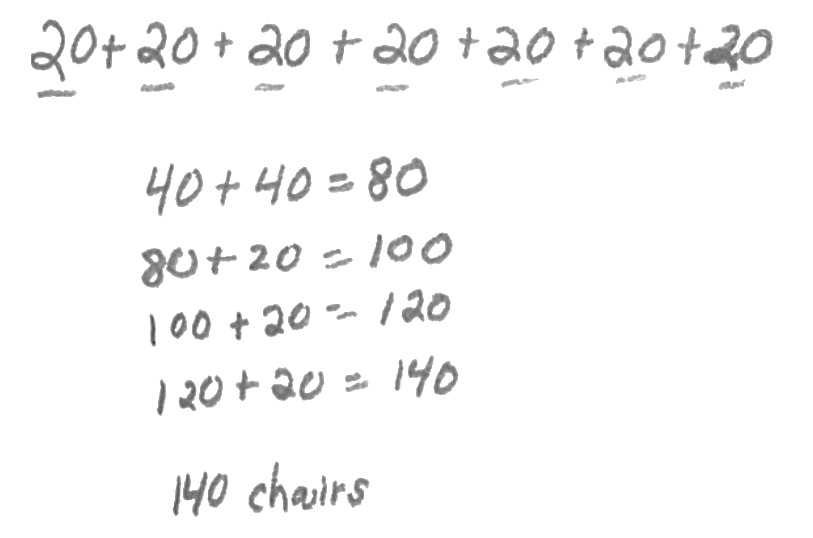 20+ 20 + 20 + 20 + 20 + 20 + 20
40 + 40 = 80
80 + 20 = 100
100 + 20 = 120
120 + 20 = 140
140 chairs